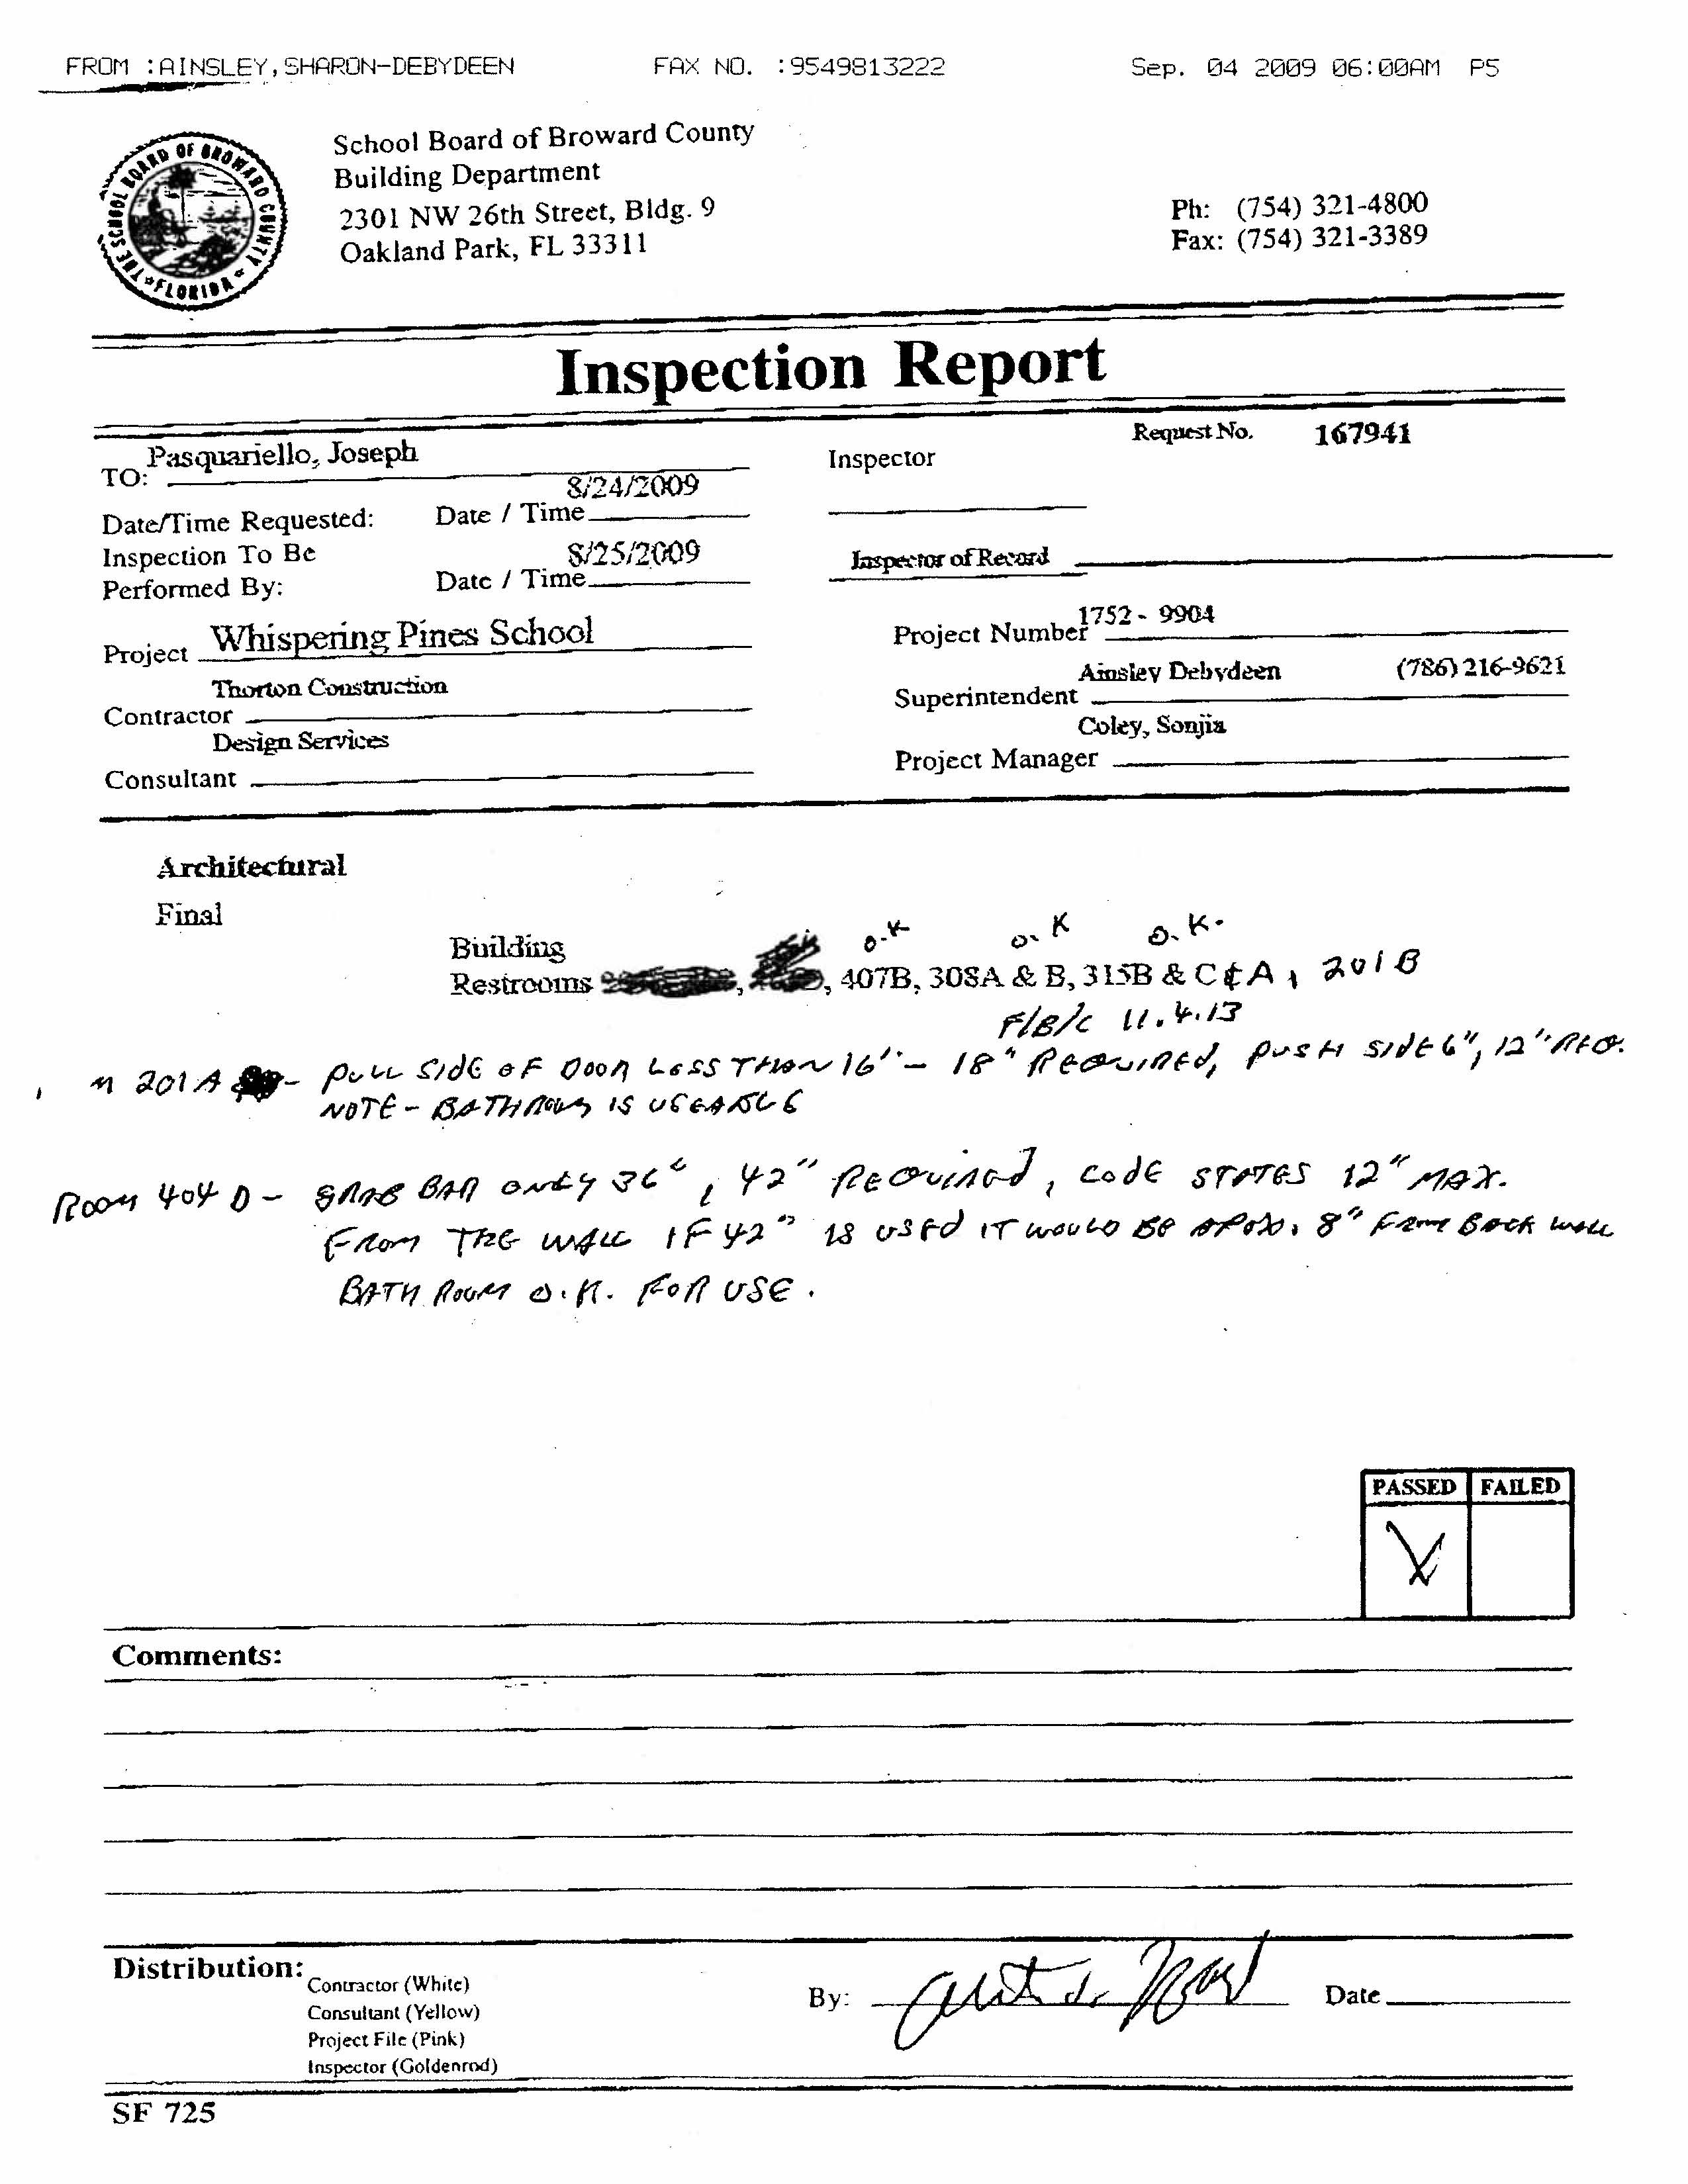 FROM :AINSLEY,SHARON-DEBYDEEN FAX NO. :9549813222 Sep. 04 2009 06:00AM P5
THE SCHOOL BOARD OF BROWARD COUNTY FLORIDA
School Board of Broward County
Building Department
2301 NW 26th Street, Bldg. 9
Oakland Park, FL 33311
Ph: (754) 321-4800
Fax: (754) 321-3389
Inspection Report
Request No. 167941
TO: Pasquariello, Joseph
Inspector
Date/Time Requested: Date / Time 8/24/2009
Inspection To Be
Performed By: Date / Time 8/25/2009
Inspector of Record
Project Whispering Pines School
Project Number 1752 - 9904
Contractor Thorton Construction
Superintendent Ainsley Debydeen (786) 216-9621
Consultant Design Services
Project Manager Coley, Sonjia
Architectural
Final
Building
O.K O.K O.K.
Restrooms , , 407B, 308A & B, 315B & C & A, 201B
F/B/C 11.4.13
M 201A - PULL SIDE OF DOOR LESS THAN 16" - 18" REQUIRED, PUSH SIDE 6", 12" REQ.
NOTE - BATHROOM IS USEABLE
ROOM 404 D - GRAB BAR ONLY 36", 42" REQUIRED, CODE STATES 12" MAX.
FROM THE WALL IF 42" IS USED IT WOULD BE APOX. 8" FROM BACK WALL
BATH ROOM O.K. FOR USE.
PASSED FAILED
Comments:
Distribution:
Contractor (White)
Consultant (Yellow)
Project File (Pink)
Inspector (Goldenrod)
By:
Date
SF 725